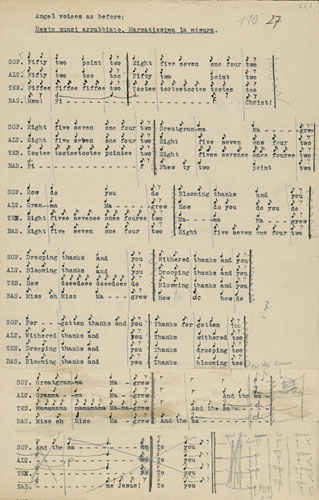 Angel voices as before;
110 27
Mesto quasi arrabbiato. Marcatissima la misura.
SOP. Fifty two point two Eight five seven one four two
ALT. Fifty two too too Fifty two point two
TEN. Fiffee fiffee fiffee two Tootee tootee tootee tootee too
BAS. Hem! Fi - - - - f Christ!
SOP. Eight five seven one four two Greatgran-ma Ma - gre
ALT. Eight five seven one four two Eight five seven one four two
TEN. Tootee tootee tootee pointee f Eight five sevence onee fouree two
BAS. Fi - - - - f Phew ty two point two
SOP. How do you do Blooming thanks and you
ALT. Gran-ma Ma - grew How do you do you do
TEN. Eight fivee sevencee onee fouree two Ma - - - ma Ma - - grew
BAS. Eight five seven one four two Eight five seven one four two
SOP. Drooping thanks and you Withered thanks and you
ALT. Blooming thanks and you Drooping thanks and you
TEN. How doeedoee doeedoee do Blooming thanks and you
BAS. Miss eh Miss Ma - grew How do how do
SOP. For - gotten thanks and you Thanks for gotten too
ALT. Withered thanks and you Thanks withered too
TEN. Drooping thanks and you Thanks drooping too
BAS. Blooming thanks and you Thanks blooming too
SOP. Greatgran-ma Ma - grew
ALT. Gramma - ma Ma - grew And the sa
TEN. Mamamama mamamama Ma-ma-grew And the sa
BAS. Miss eh Miss Ma - grew And the sa
SOP. And the sa - - - me To you
ALT. - - - me To you
TEN. - - - me To you
BAS. - - - me Jesus! To you